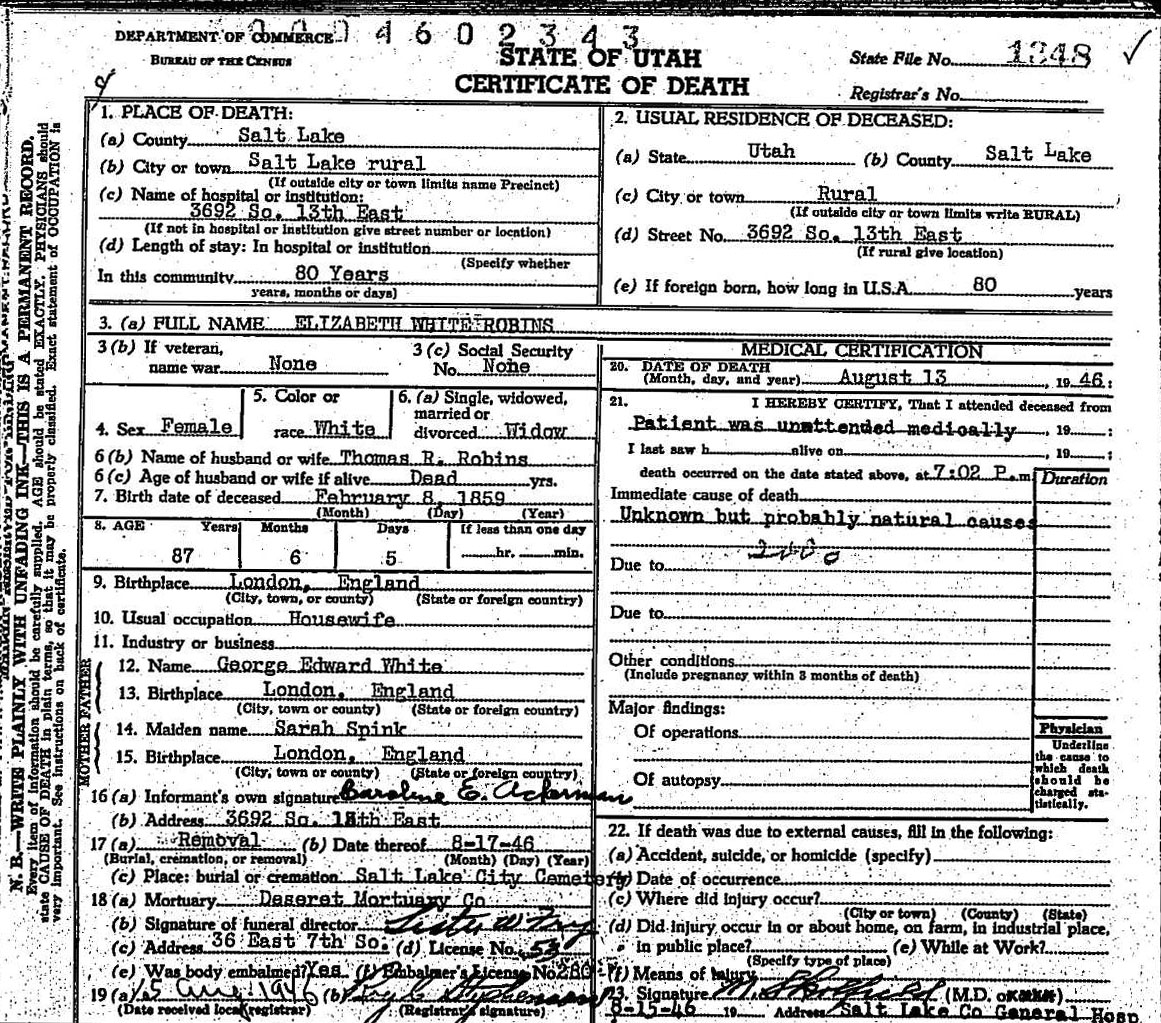 DEPARTMENT OF COMMERCE
BUREAU OF THE CENSUS
04602343
STATE OF UTAH
CERTIFICATE OF DEATH
State File No. 1348 ✓
Registrar's No.
N. B.—WRITE PLAINLY WITH UNFADING INK—THIS IS A PERMANENT RECORD.
Every item of information should be carefully supplied. AGE should be stated EXACTLY. PHYSICIANS should
state CAUSE OF DEATH in plain terms, so that it may be properly classified. Exact statement of OCCUPATION is
very important. See instructions on back of certificate.
1. PLACE OF DEATH:
(a) County Salt Lake
(b) City or town Salt Lake rural
(If outside city or town limits name Precinct)
(c) Name of hospital or institution:
3692 So. 13th East
(If not in hospital or institution give street number or location)
(d) Length of stay: In hospital or institution
(Specify whether
In this community 80 Years
years, months or days)
2. USUAL RESIDENCE OF DECEASED:
(a) State Utah (b) County Salt Lake
(c) City or town Rural
(If outside city or town limits write RURAL)
(d) Street No. 3692 So. 13th East
(If rural give location)
(e) If foreign born, how long in U.S.A. 80 years
3. (a) FULL NAME ELIZABETH WHITE ROBINS
3 (b) If veteran,
name war None
3 (c) Social Security
No. None
4. Sex Female
5. Color or
race White
6. (a) Single, widowed,
married or
divorced Widow
6 (b) Name of husband or wife Thomas R. Robins
6 (c) Age of husband or wife if alive Dead yrs.
7. Birth date of deceased February 8, 1859
(Month) (Day) (Year)
8. AGE Years Months Days If less than one day
87 6 5 hr. min.
9. Birthplace London, England
(City, town, or county) (State or foreign country)
10. Usual occupation Housewife
11. Industry or business
FATHER
12. Name George Edward White
13. Birthplace London, England
(City, town or county) (State or foreign country)
MOTHER
14. Maiden name Sarah Spink
15. Birthplace London, England
(City, town or county) (State or foreign country)
16 (a) Informant's own signature Caroline E. Ackerman
(b) Address 3692 So. 13th East
17 (a) Removal (b) Date thereof 8-17-46
(Burial, cremation, or removal) (Month) (Day) (Year)
(c) Place: burial or cremation Salt Lake City Cemetery
18 (a) Mortuary Deseret Mortuary Co
(b) Signature of funeral director
(c) Address 36 East 7th So. (d) License No. 53
(e) Was body embalmed? Yes (f) Embalmer's License No. 280
19 (a) 15 Aug 1946 (b)
(Date received local registrar) (Registrar's signature)
MEDICAL CERTIFICATION
20. DATE OF DEATH
(Month, day, and year) August 13, 1946:
21. I HEREBY CERTIFY, That I attended deceased from
Patient was unattended medically, 19 :
I last saw h alive on , 19 :
death occurred on the date stated above, at 7:02 P.m
Duration
Immediate cause of death
Unknown but probably natural causes
Due to
Due to
Other conditions
(Include pregnancy within 3 months of death)
Major findings:
Of operations
Of autopsy
Physician
Underline
the cause to
which death
should be
charged sta-
tistically.
22. If death was due to external causes, fill in the following:
(a) Accident, suicide, or homicide (specify)
(b) Date of occurrence
(c) Where did injury occur?
(City or town) (County) (State)
(d) Did injury occur in or about home, on farm, in industrial place,
in public place? (e) While at Work?
(Specify type of place)
(f) Means of Injury
23. Signature (M.D. or
8-15-46 19 Address Salt Lake Co General Hosp